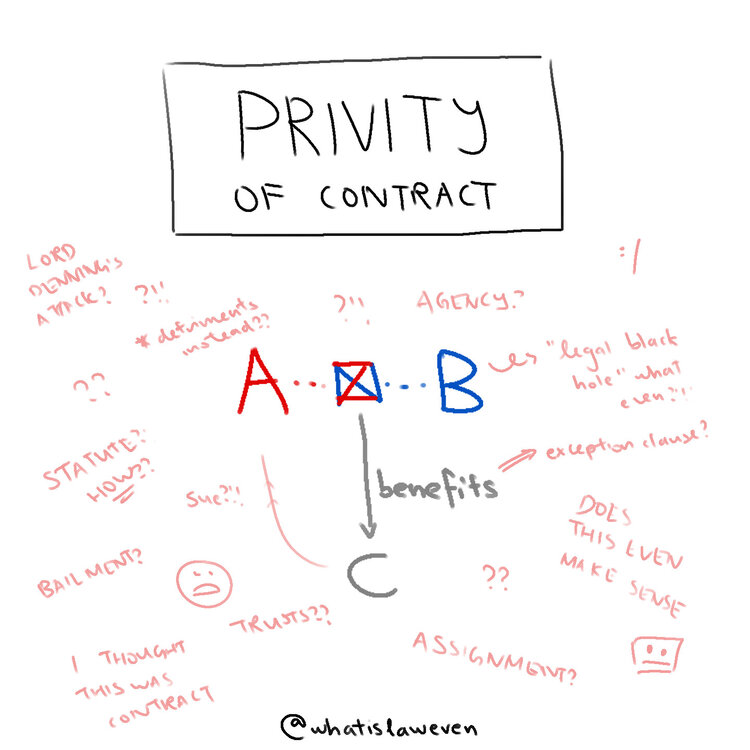 PRIVITY
OF CONTRACT
LORD
DENNING'S
ATTACK?
?!!
* detriments
instead??
?!!
AGENCY?
:/
??
A
B
"legal black
hole" what
even?!!
STATUTE?!
HOW??
Sue?!!
benefits
exception clause?
C
DOES
THIS EVEN
MAKE SENSE
BAILMENT?
TRUSTS??
??
ASSIGNMENT?
I THOUGHT
THIS WAS
CONTRACT
@whatislaweven